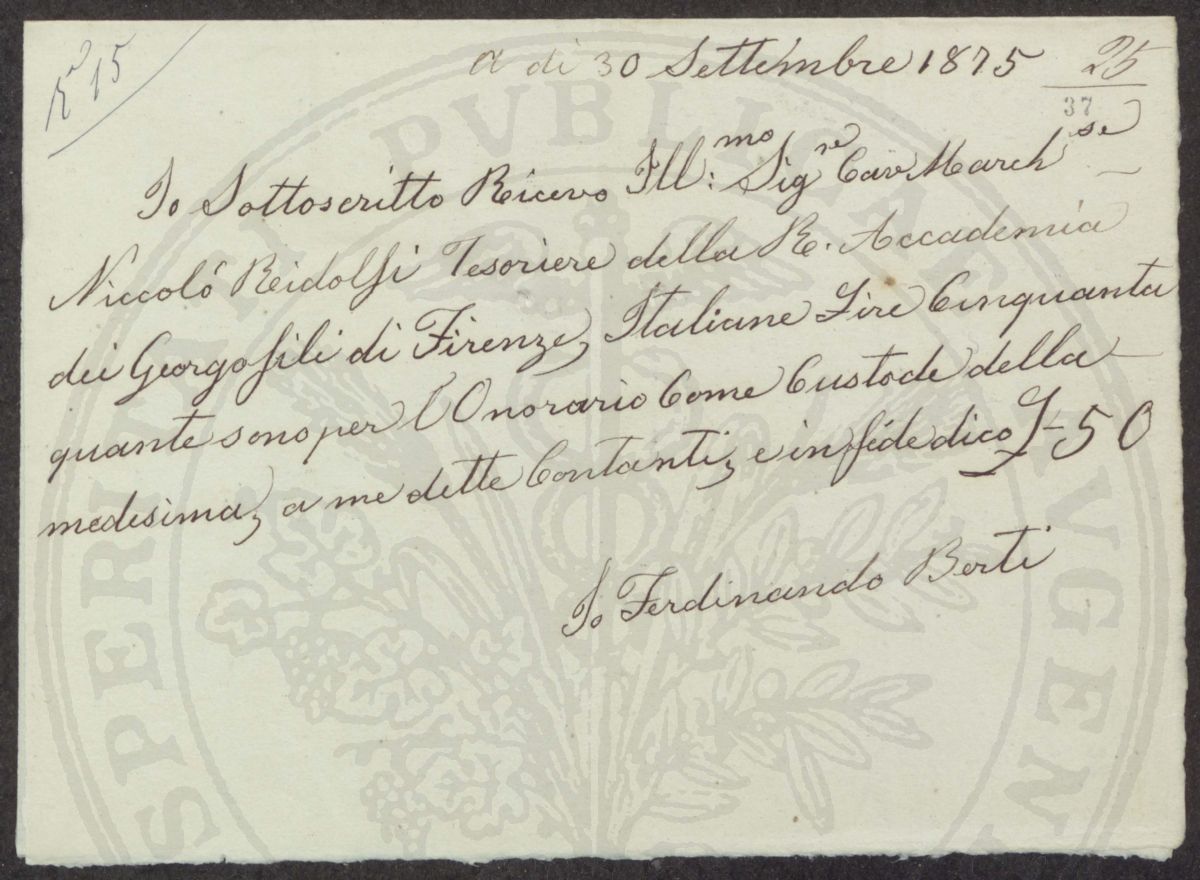 R^a 15
a di 30 Settembre 1875 25
37
Io Sottoscritto Ricevo Ill:mo Sigre Cav. Marchse
Niccoló Ridolfi Tesoriere della R. Accademia
dei Georgofili di Firenze, Italiane Lire Cinquanta
quante sono per l'Onorario Come Custode della
medesima, a me dette Contanti, e in fede dico £ 50
Io Ferdinando Berti
PROSPERITATI PVBLICAE AVGENDAE